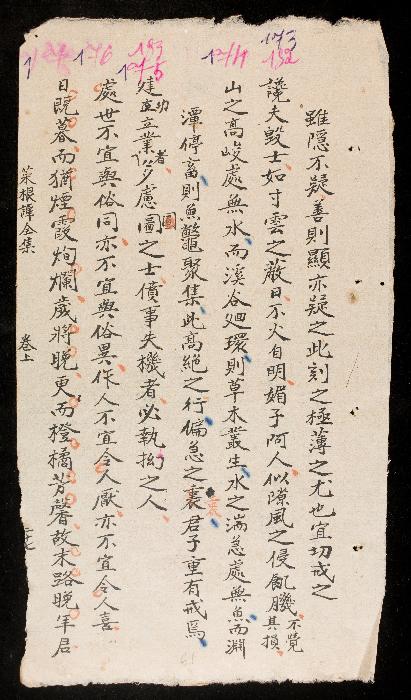 雖隱不疑善則顯亦疑之此刻之極薄之尤也宜切戒之
讒夫毀士如寸雲之蔽日不久自明媚子阿人似隙風之侵肌不覺其損
山之高峻處無水而溪谷廻環則草木叢生水之湍急處無魚而淵
潭停畜則魚鱉聚集此高絕之行偏急之衷君子重有戒焉
建功立業者多慮圓之士僨事失機者必執拗之人
處世不宜與俗同亦不宜與俗異作人不宜令人厭亦不宜令人喜
日既暮而猶煙霞絢爛歲將晚更而橙橘芳馨故末路晚年君
菜根譚全集
卷上